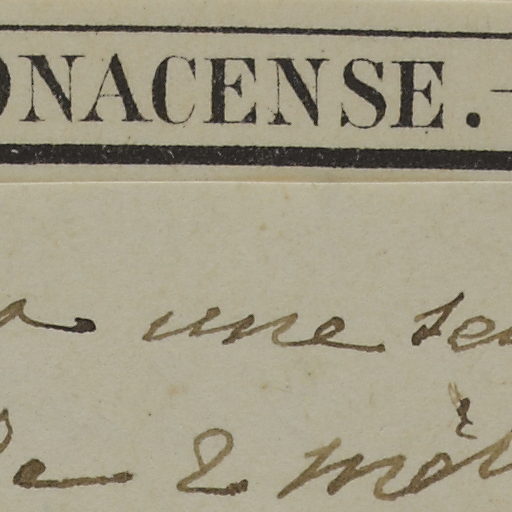 ONACENSE. -
a une se
de 2 mèt